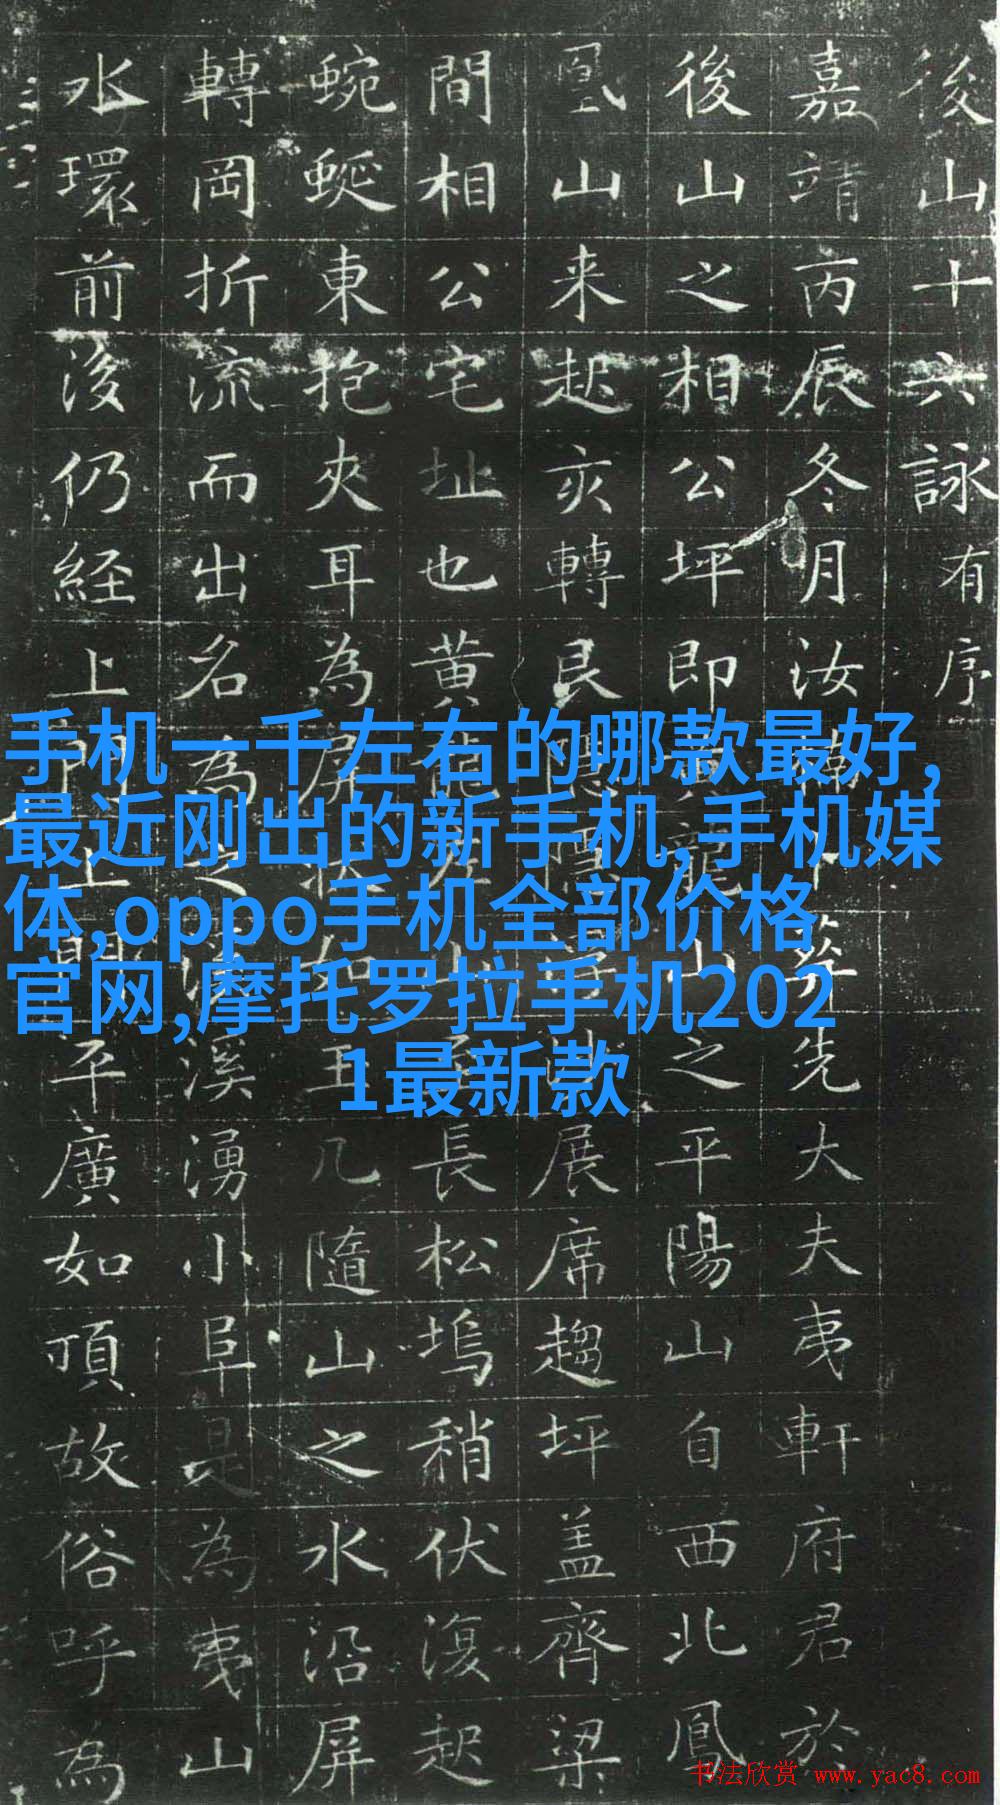 後山十六詠有序
嘉靖丙辰冬月汝卜葬先大夫夷軒府君於
後山之相公坪即龍山之平陽山自西北鳳
凰山来起亥轉艮隱隱展席趨坪盖齊梁
間相公宅址也黄龍山長松塢稍伏復起
蜿蜒東抱夾耳為屏狀如五几隨山之水沿屏
轉岡折流而出名為之溪湧小阜是為夷山
水環前後仍経上門上平廣如頂故俗呼為
手机一千左右的哪款最好,
最近刚出的新手机,手机媒
体,oppo手机全部价格
官网,摩托罗拉手机202
1最新款
书法欣赏 www.yac8.com